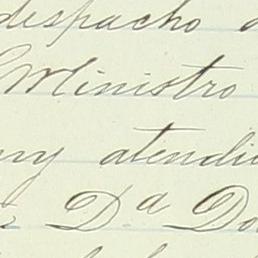 despacho
Ministro
atendi
Dª Do